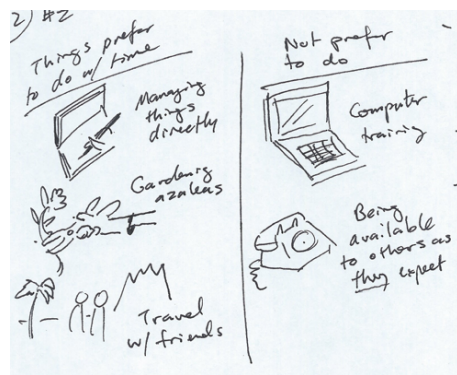 2) #2
Things prefer
to do w/ time
Managing
things
directly
Gardening
azaleas
Travel
w/ friends
Not prefer
to do
Computer
training
Being
available
to others as
they expect